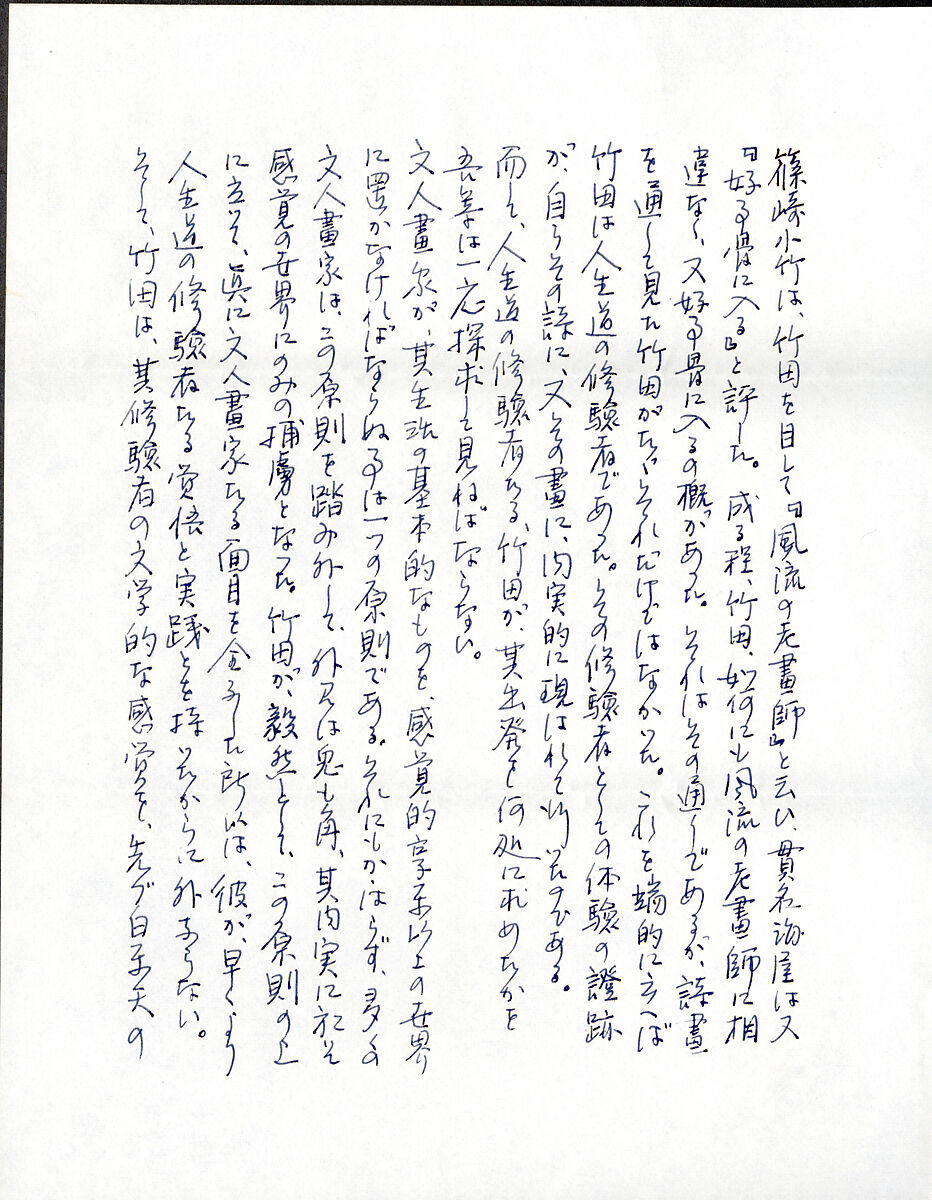 篠崎小竹は、竹田を目して「風流の老畫師」と云ひ、貫名海屋は又
「好事骨に入る」と評した。成る程、竹田、如何にも風流の老畫師に相
違なく、又好事骨に入るの概があった。それはその通りであるが、詩畫
を通して見た竹田がたゞそれだけではなかった。これを端的に言へば
竹田は人生道の修驗者であった。その修驗者としての体驗の證跡
が、自らその詩に、又その畫に、内実的に現はれて行ったのである。
而して、人生道の修驗者たる、竹田が、其出発を何処に求めたかを
吾等は一応探求して見ねばならない。
文人畫家が、其生活の基本的なものを、感覚的享楽以上の世界
に置かなければならぬ事は一つの原則である。それにもかゝはらず、多くの
文人畫家は、この原則を踏み外して、外見は兎も角、其内実に於て
感覚の世界にのみの捕虜となった。竹田が、毅然として、この原則の上
に立って、眞に文人畫家たる面目を全ふした所以は、彼が、早くより
人生道の修驗者たる覚悟と実践とを持ったからに外ならない。
そして、竹田は、其修驗者の文学的な感覚を、先づ白楽天の